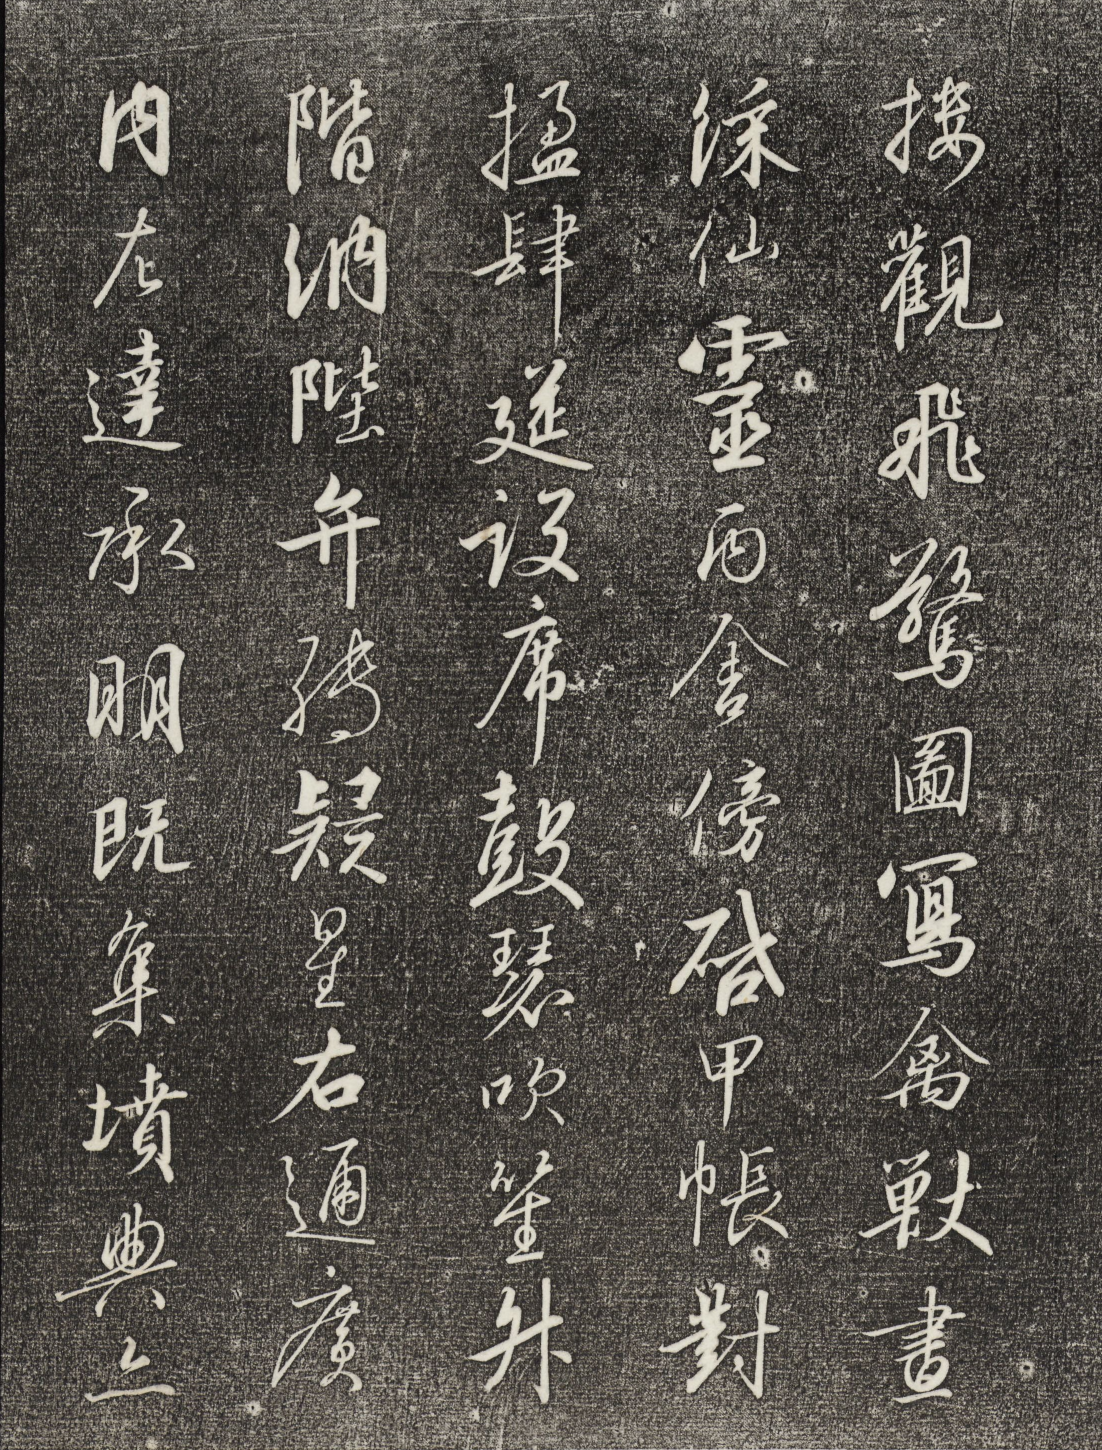 樓觀飛驚圖寫禽獸畫
綵仙靈丙舍傍啓甲帳對
楹肆筵設席鼓瑟吹笙升
階納陛弁轉疑星右通廣
內左達承明既集墳典亦